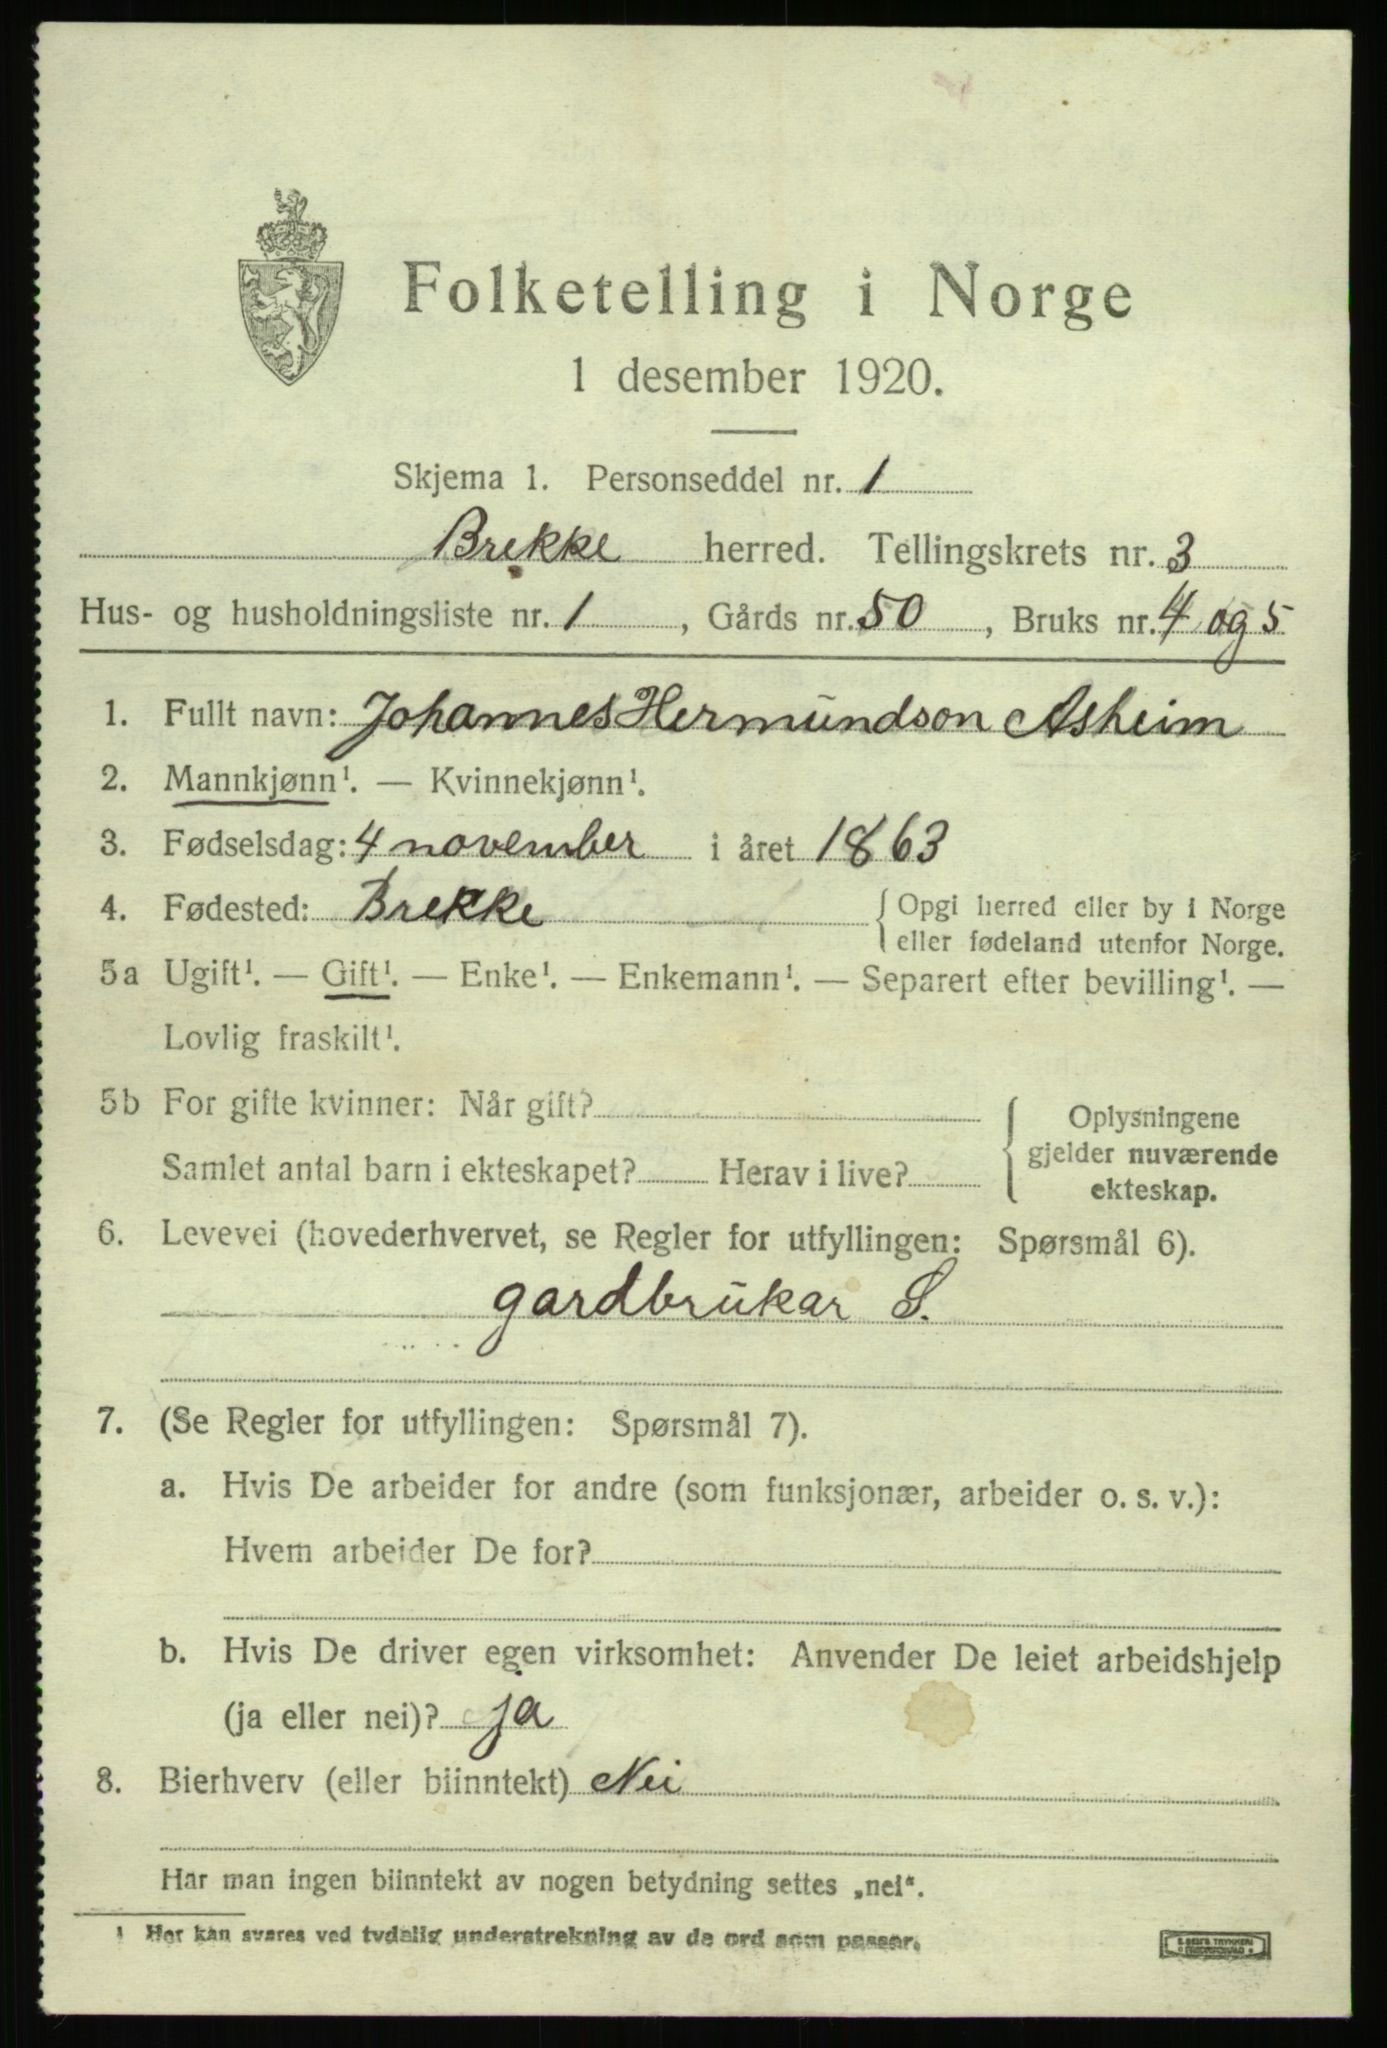 Folketelling i Norge
1 desember 1920.
Skjema 1. Personseddel nr. 1
Brekke herred. Tellingskrets nr. 3
Hus- og husholdningsliste nr. 1, Gårds nr. 50, Bruks nr. 4 og 5
1. Fullt navn: Johannes Hermundson Asheim
2. Mannkjønn¹. — Kvinnekjønn¹.
3. Fødselsdag: 4 november i året 1863
4. Fødested: Brekke { Opgi herred eller by i Norge
eller fødeland utenfor Norge.
5a Ugift¹. — Gift¹. — Enke¹. — Enkemann¹. — Separert efter bevilling¹. —
Lovlig fraskilt¹.
5b For gifte kvinner: Når gift?
Samlet antal barn i ekteskapet? Herav i live?
Oplysningene
gjelder nuværende
ekteskap.
6. Levevei (hovederhvervet, se Regler for utfyllingen: Spørsmål 6).
gardbrukar S.
7. (Se Regler for utfyllingen: Spørsmål 7).
a. Hvis De arbeider for andre (som funksjonær, arbeider o. s. v.):
Hvem arbeider De for?
b. Hvis De driver egen virksomhet: Anvender De leiet arbeidshjelp
(ja eller nei)? ja
8. Bierhverv (eller biinntekt) Nei
Har man ingen biinntekt av nogen betydning settes „nei“.
¹ Her kan svares ved tydelig understrekning av de ord som passer.